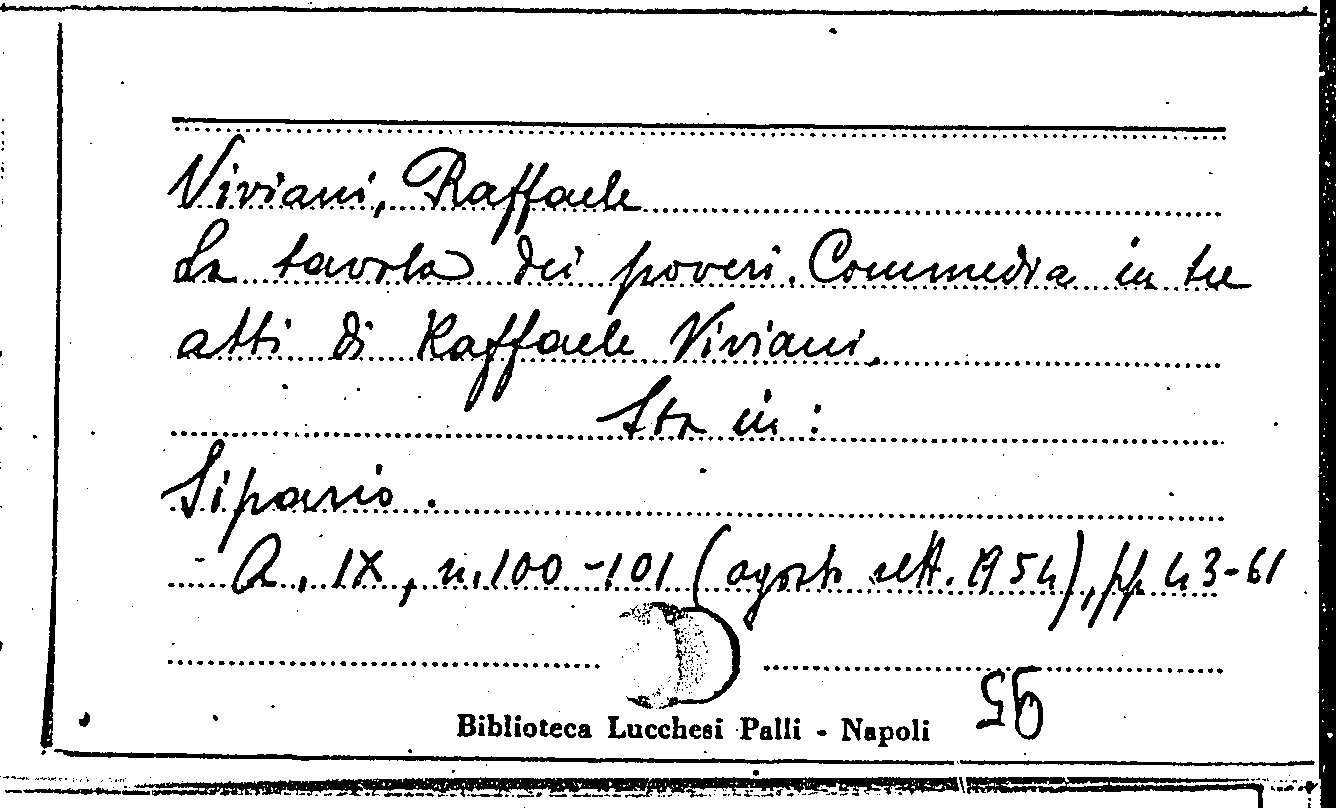 Viviani, Raffaele
La tavola dei poveri. Commedia in tre
atti di Raffaele Viviani.
Sta in:
Sipario.
- A. IX, n. 100-101 (agosto sett. 1954), pp. 43-61
Biblioteca Lucchesi Palli - Napoli